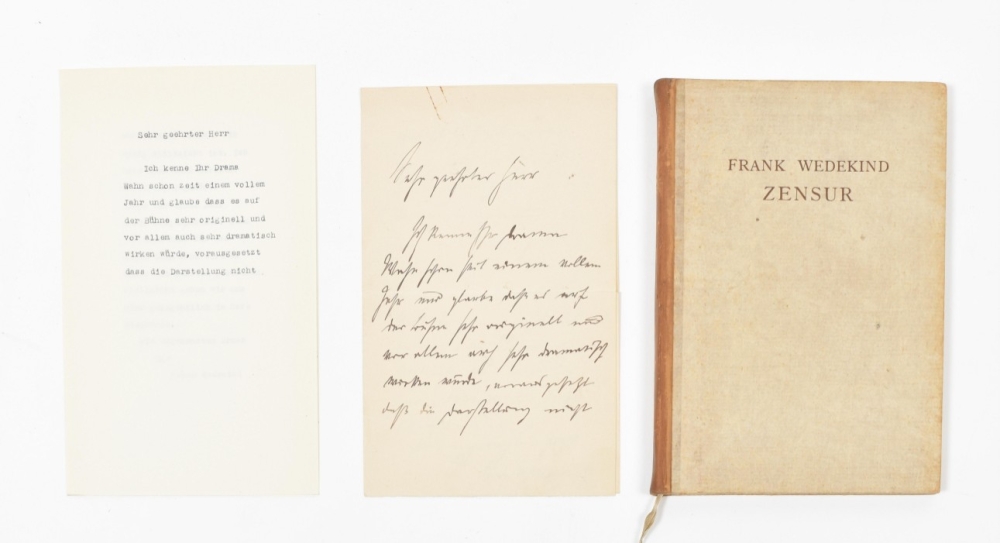 Sehr geehrter Herr
Ich kenne Ihr Drama
Wahn schon seit einem vollem
Jahr und glaube dass es auf
der Bühne sehr originell und
vor allem auch sehr dramatisch
wirken würde, vorausgesetzt
dass die Darstellung nicht
Sehr geehrter Herr
Ich kenne Ihr Drama
Wahn schon seit einem vollem
Jahr und glaube daß es auf
der Bühne sehr originell und
vor allem auch sehr dramatisch
wirken würde, vorausgesetzt
daß die Darstellung nicht
FRANK WEDEKIND
ZENSUR